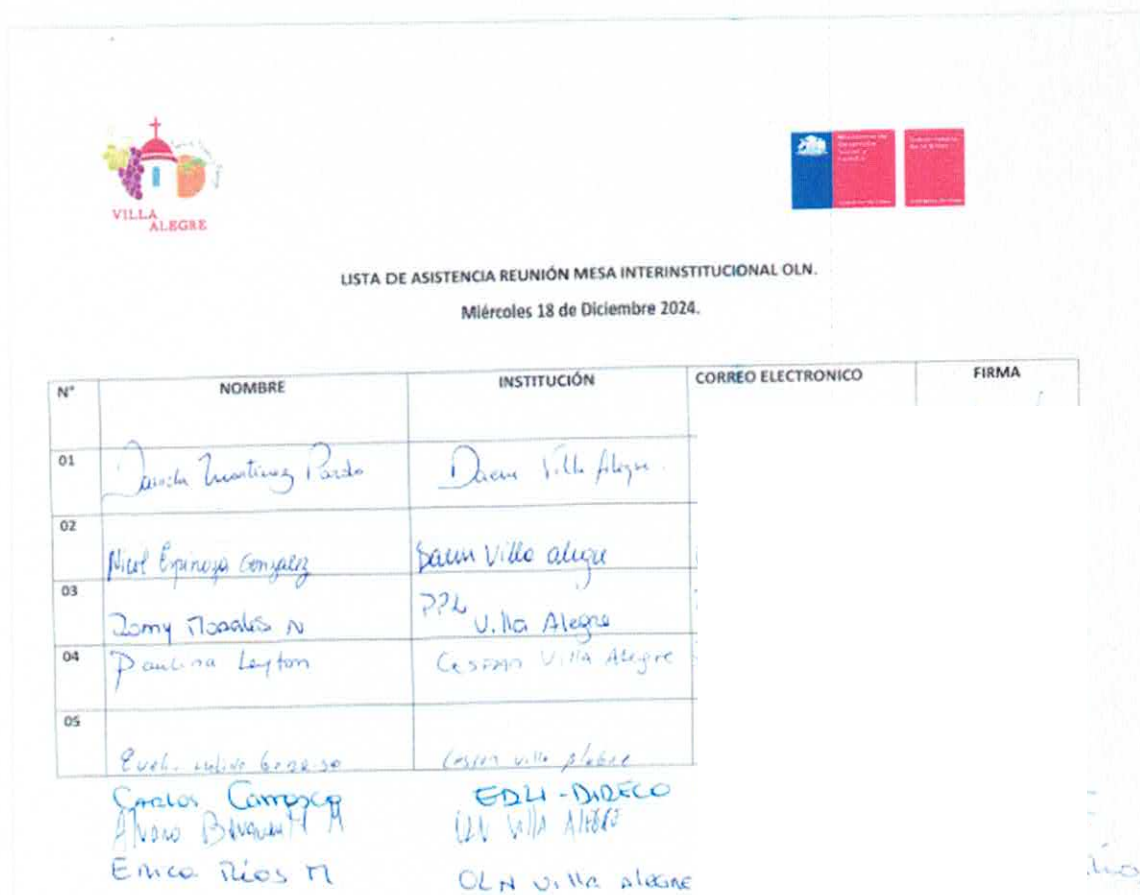 VILLA
ALEGRE
LISTA DE ASISTENCIA REUNIÓN MESA INTERINSTITUCIONAL OLN.
Miércoles 18 de Diciembre 2024.
N° NOMBRE INSTITUCIÓN CORREO ELECTRONICO FIRMA
01 Martinez Pardo Daem Villa Alegre.
02 Nicol Espinoza Gonzalez Daem Villa alegre
03 Romy Morales N PPL Villa Alegre
04 Paulina Leyton CESFAM Villa Alegre
05 Cesfam villa Alegre
Carlos Carrasco
Alvaro Villa Alegre
Erica Ríos M OLN Villa Alegre